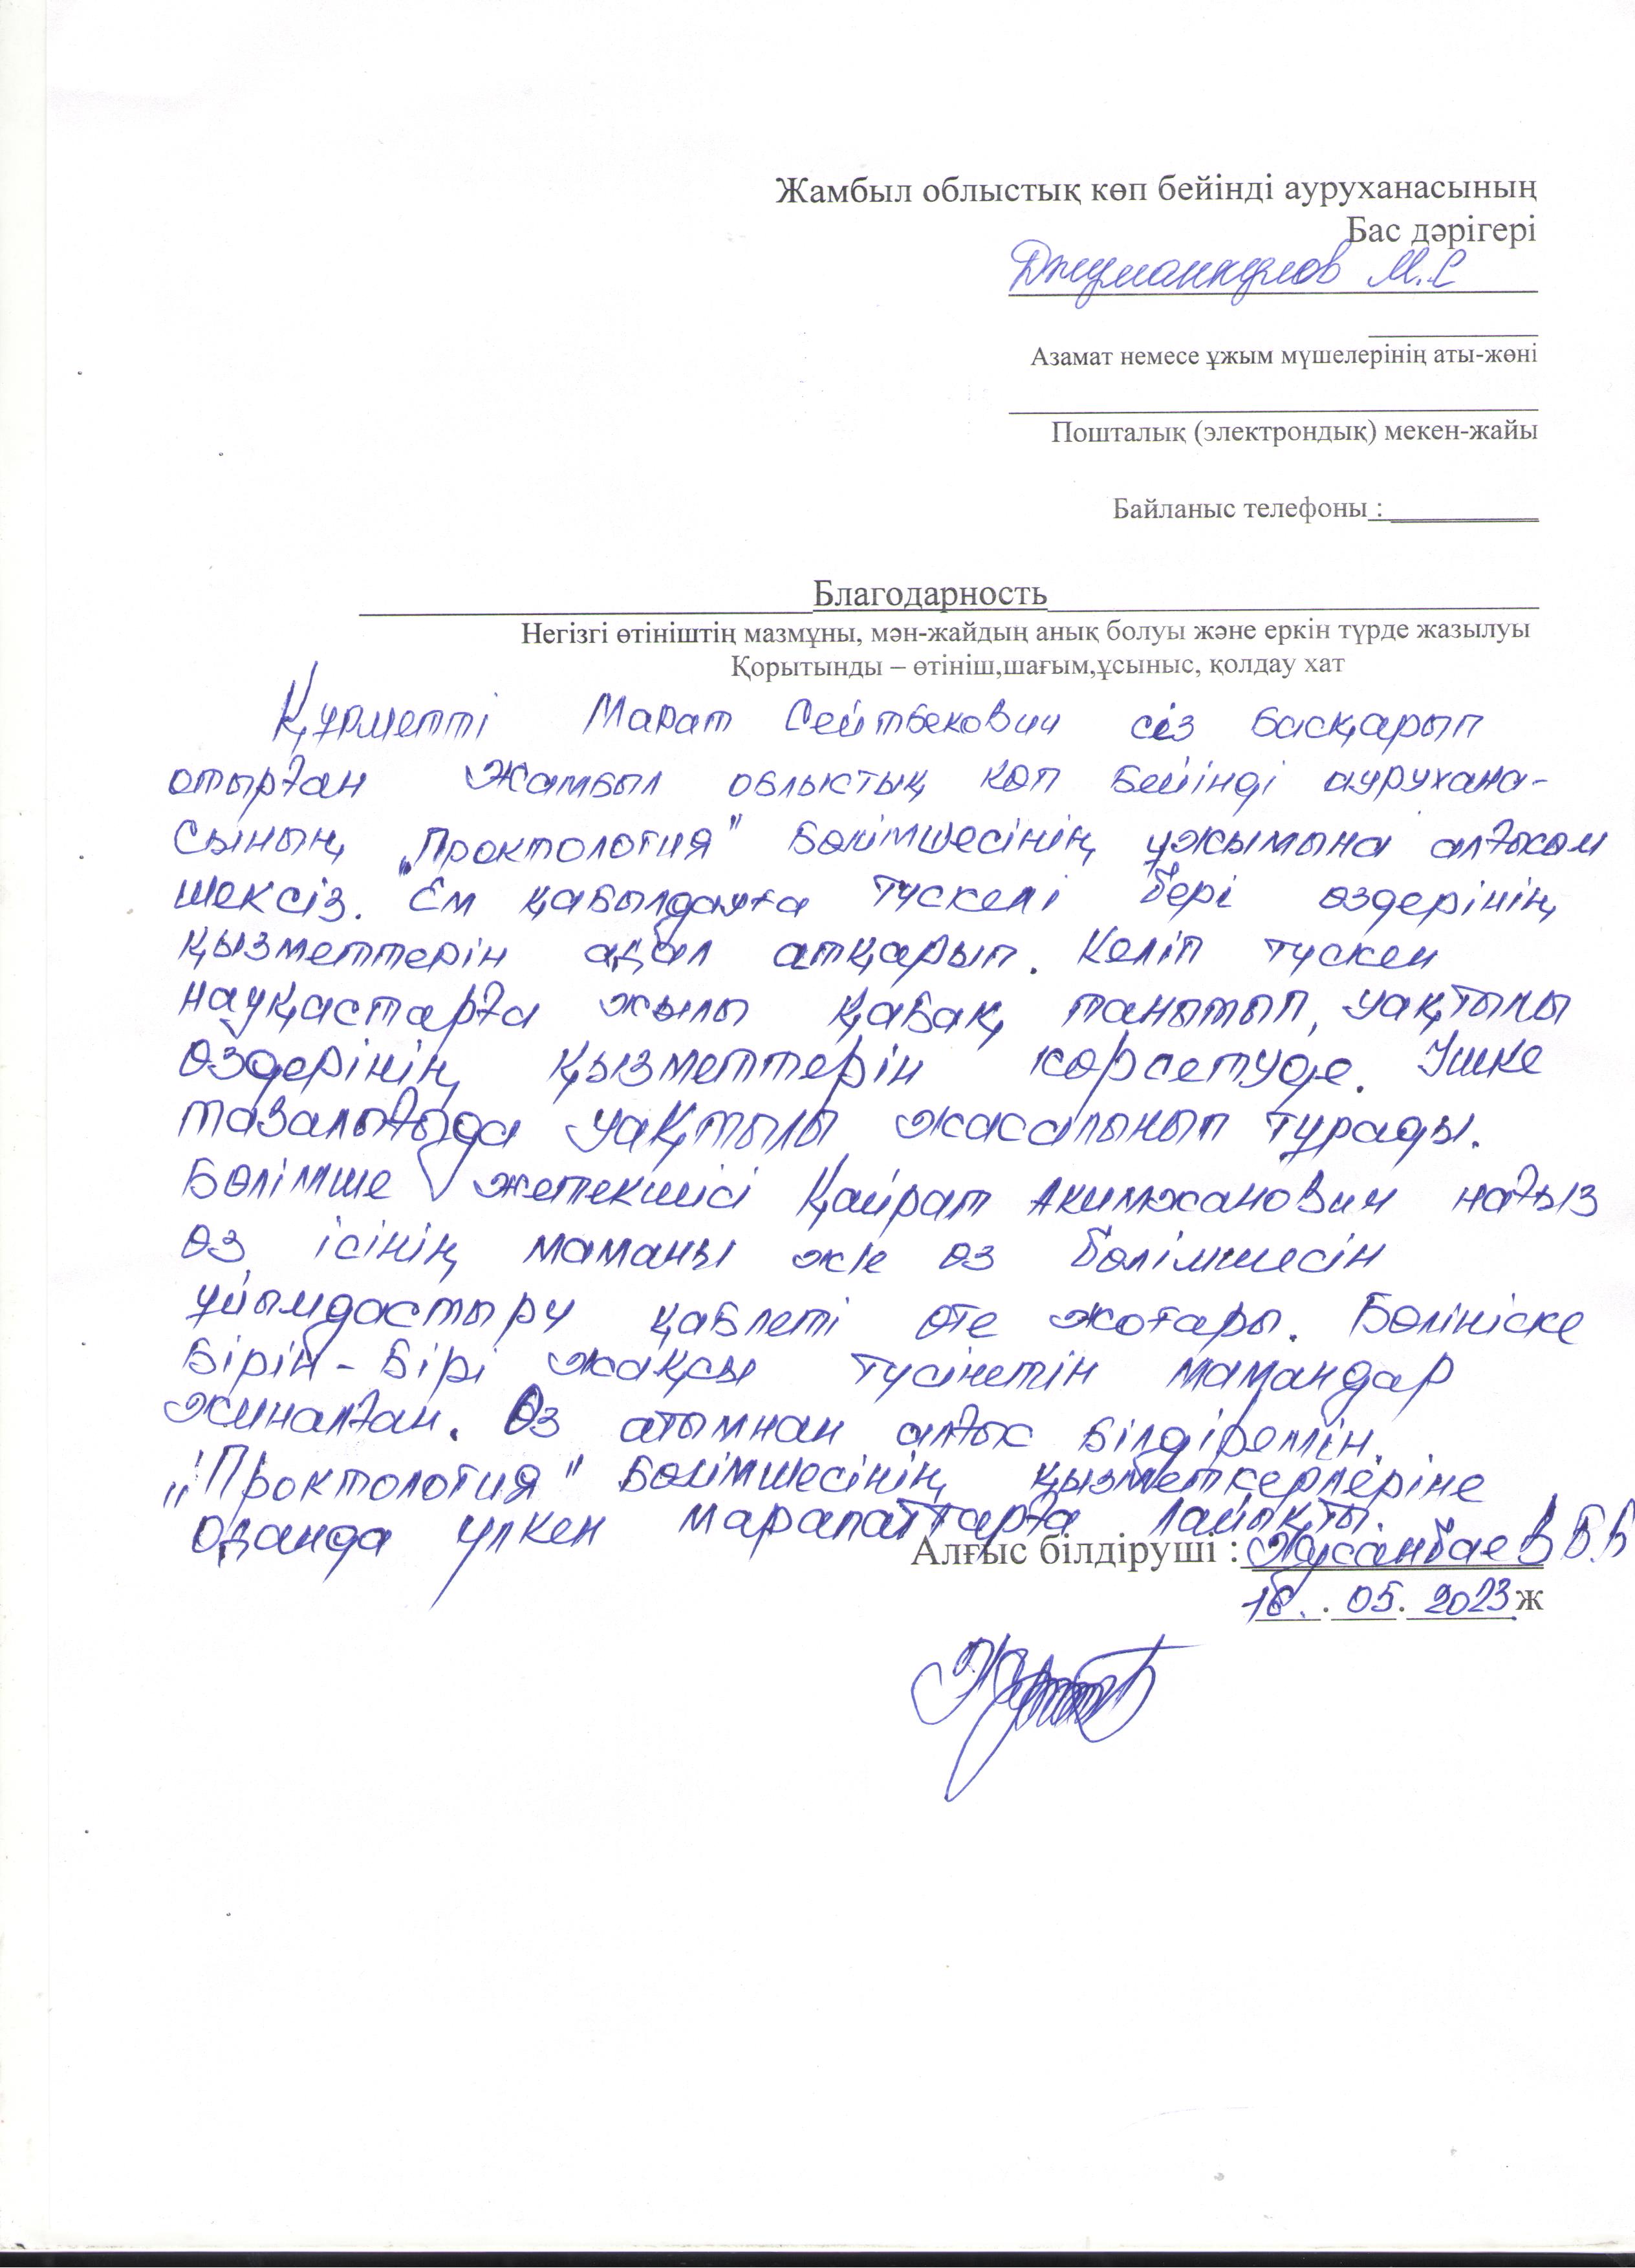 Жамбыл облыстық көп бейінді ауруханасының
Бас дәрігері
Джуманкулов М.С
Азамат немесе ұжым мүшелерінің аты-жөні
Пошталық (электрондық) мекен-жайы
Байланыс телефоны :
Благодарность
Негізгі өтініштің мазмұны, мән-жайдың анық болуы және еркін түрде жазылуы
Қорытынды – өтініш,шағым,ұсыныс, қолдау хат
Құрметті Марат Сейтбекович сіз басқарып
отырған Жамбыл облыстық көп бейінді аурухана-
сының „Проктология" бөлімшесінің ұжымына алғысым
шексіз. Ем қабылдауға түскелі бері өздерінің
қызметтерін адал атқарып. Келіп түскен
науқастарға жылы қабақ танытып, уақтылы
өздерінің қызметтерін көрсетуде. Ішке
тазалығыда уақтылы жасалынып тұрады.
Бөлімше жетекшісі Қайрат Акимжанович нағыз
өз ісінің маманы ж/е өз бөлімшесін
ұйымдастыру қаблеті өте жоғары. Бөлініске
бірін-бірі жақсы түсінетін мамандар
жиналған. Өз атымнан алғыс білдіремін.
„Проктология" бөлімшесінің қызметкерлеріне
оданда үлкен марапаттарға лайықты.
Алғыс білдіруші : Жусанбаев Б.Б
16.05.2023 ж